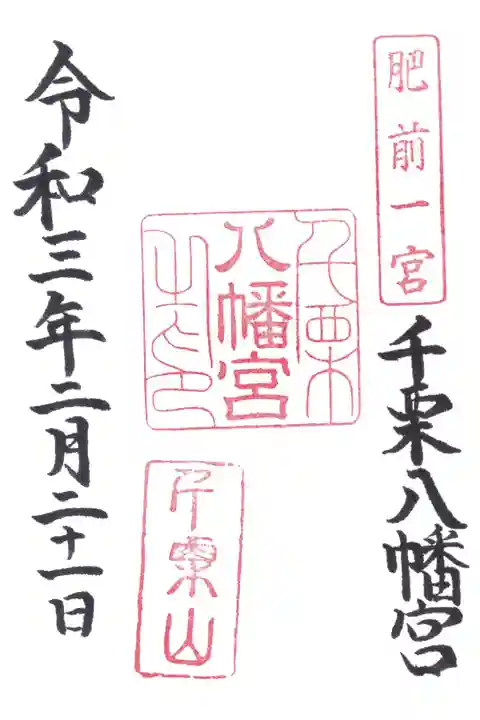 肥前一宮
千栗八幡宮
千栗
八幡宮
之印
千栗山
令和三年二月二十一日